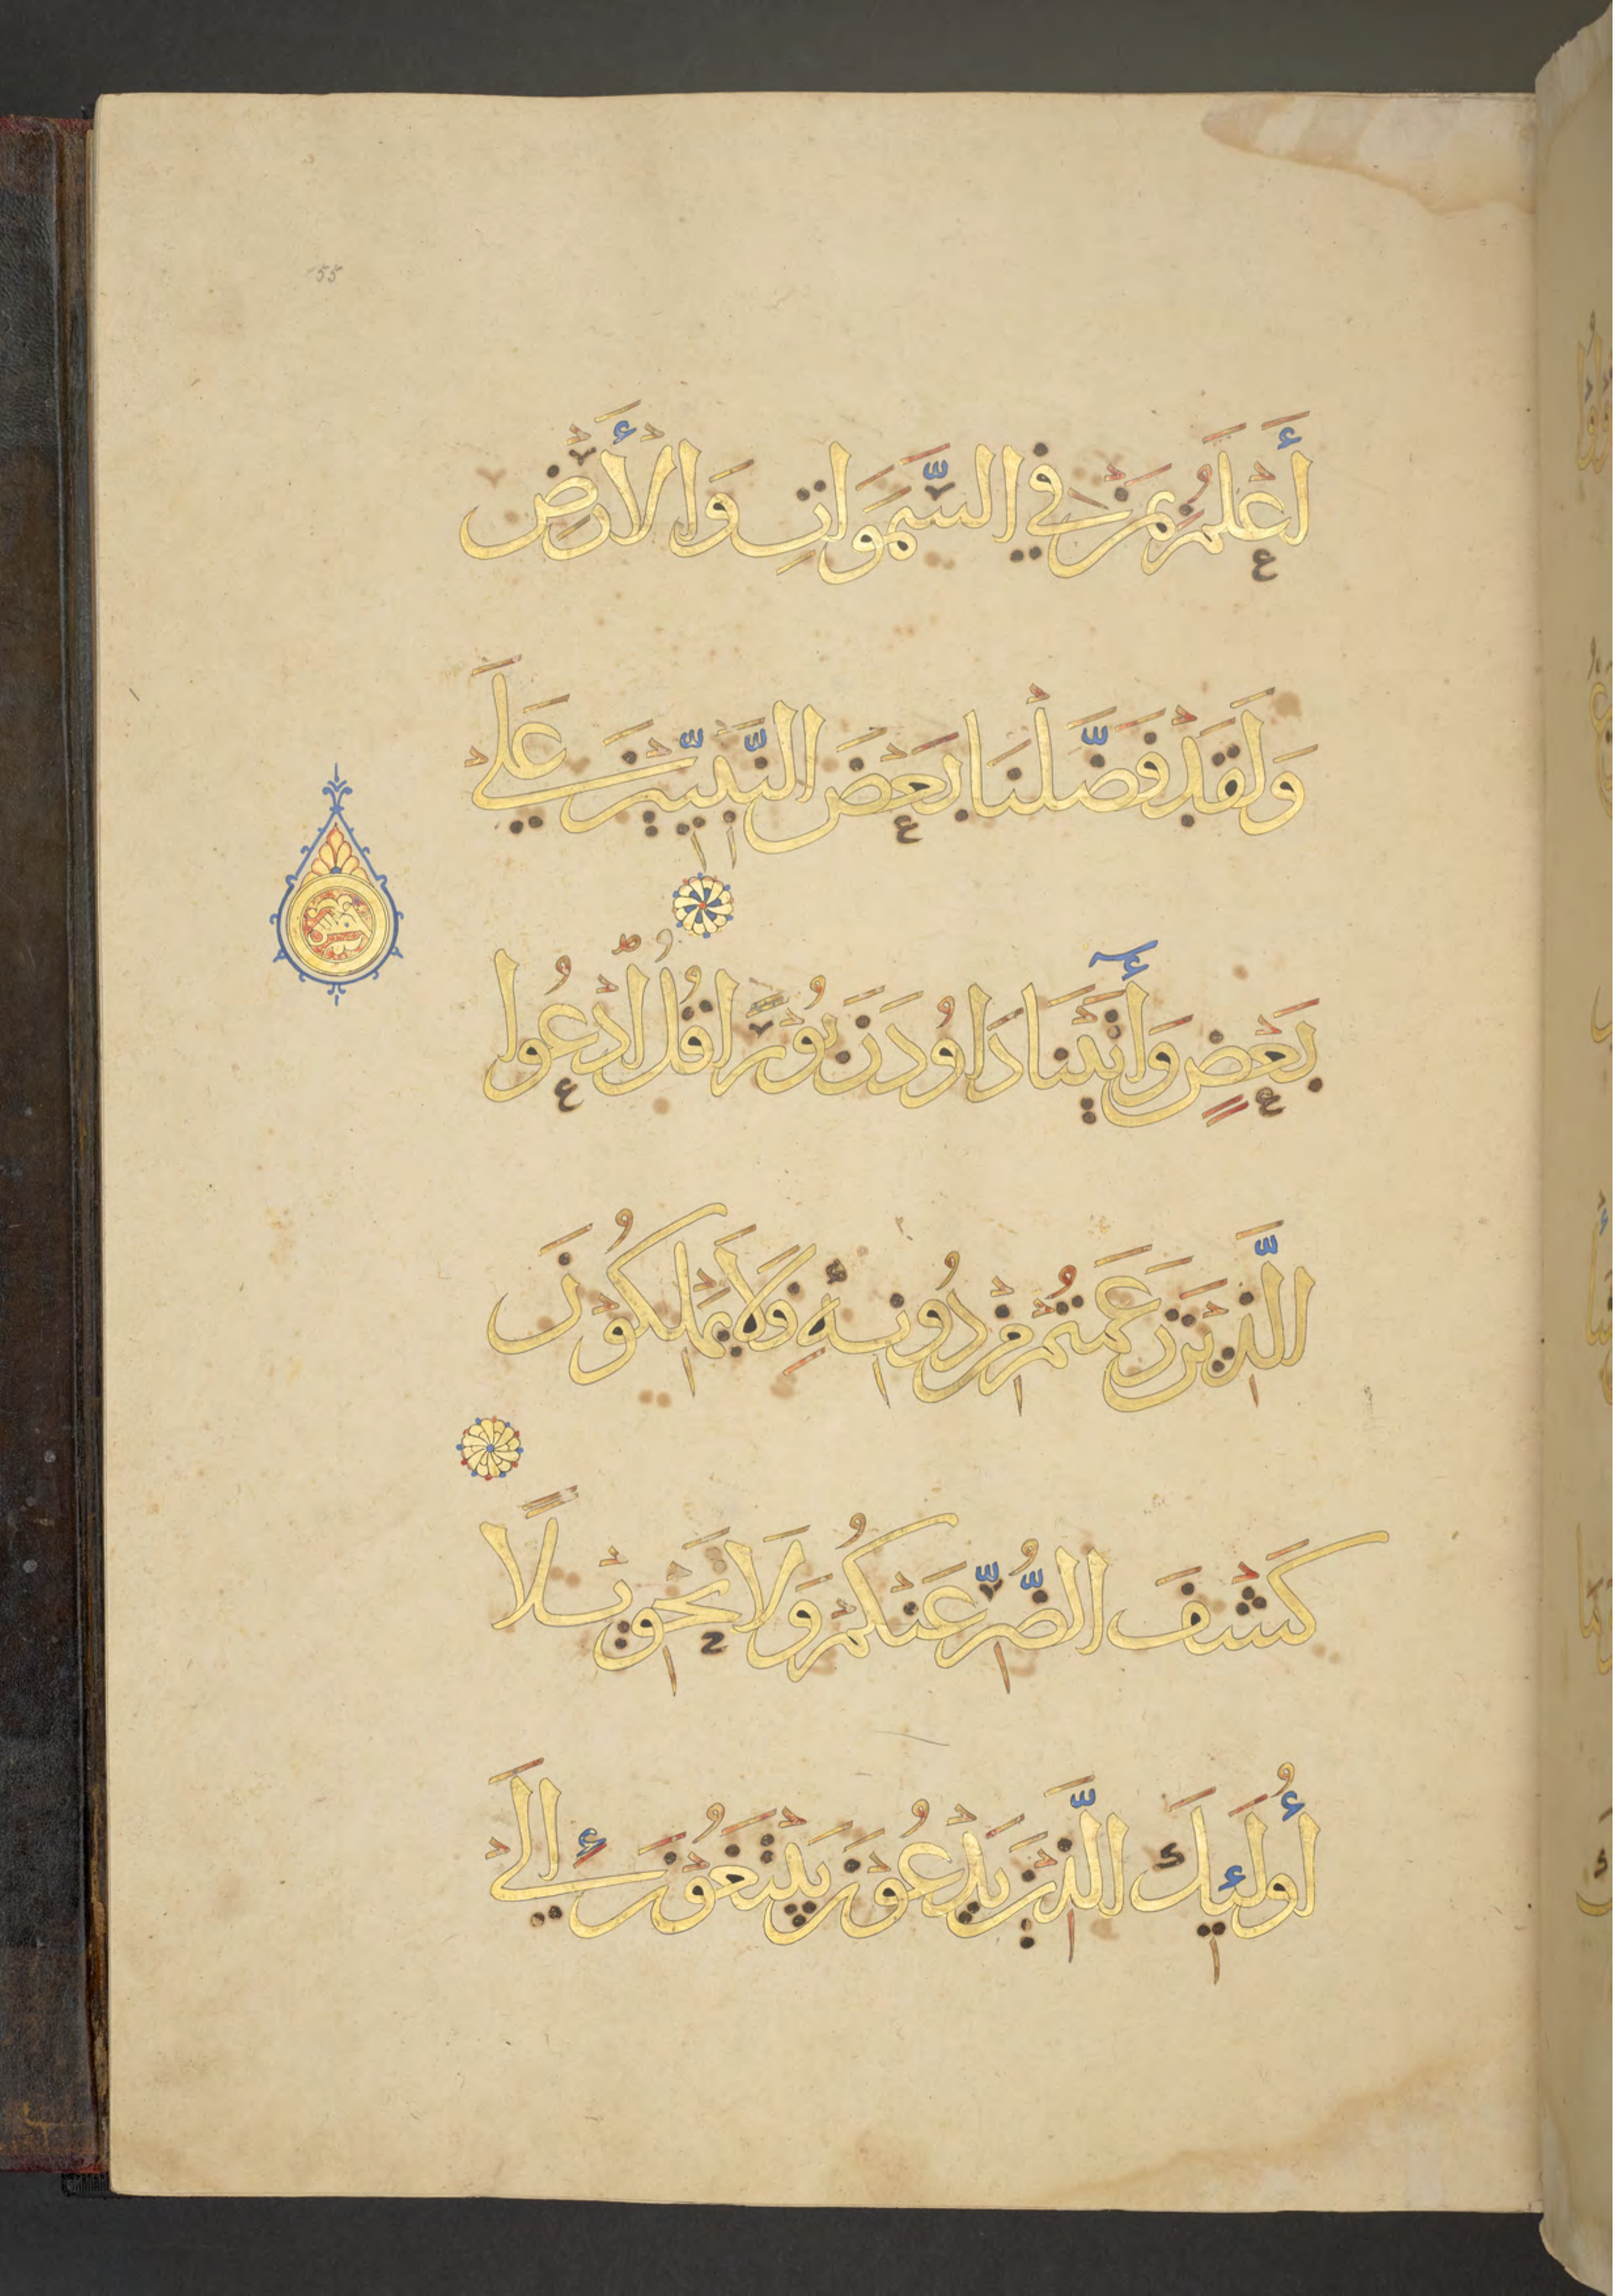 55
أَعْلَمُ بِمَنْ فِي السَّمَوَاتِ وَالْأَرْضِ
وَلَقَدْ فَضَّلْنَا بَعْضَ النَّبِيِّينَ عَلَى
بَعْضٍ وَأٓتَيْنَا دَاوُدَ زَبُورًا قُلُ ادْعُوا
الَّذِينَ زَعَمْتُمْ مِنْ دُونِهِ فَلَا يَمْلِكُونَ
كَشْفَ الضُّرِّ عَنْكُمْ وَلَا تَحْوِيلًا
أُولَئِكَ الَّذِينَ يَدْعُونَ يَبْتَغُونَ إِلَى